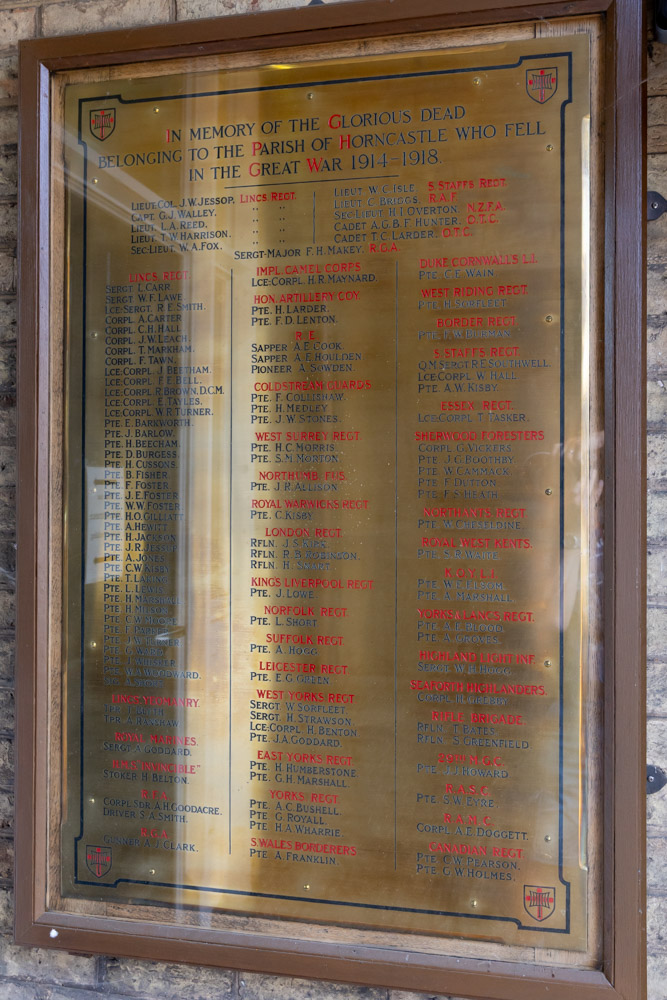 IN MEMORY OF THE GLORIOUS DEAD
BELONGING TO THE PARISH OF HORNCASTLE WHO FELL
IN THE GREAT WAR 1914-1918.
LIEUT COL. J.W. JESSOP, LINCS REGT.
CAPT. G.J. WALLEY. " "
LIEUT. L.A. REED. " "
LIEUT. T.W. HARRISON. " "
SEC-LIEUT. W.A. FOX. " "
LIEUT W.C. ISLE. S. STAFFS REGT.
LIEUT C. BRIGGS. R.A.F.
SEC-LIEUT H.I. OVERTON. N.Z.F.A.
CADET A.G.B.F. HUNTER. O.T.C.
CADET T.C. LARDER. O.T.C.
SERGT-MAJOR F.H. MAKEY. R.G.A.
LINCS. REGT.
SERGT L. CARR.
SERGT W.F. LAWE
LCE-SERGT. R.E. SMITH.
CORPL A. CARTER
CORPL. C.H. HALL
CORPL. J.W. LEACH.
CORPL. T. MARKHAM.
CORPL. F. TAWN.
LCE:CORPL. J. BEETHAM.
LCE:CORPL. F.E. BELL.
LCE:CORPL. R. BROWN. D.C.M.
LCE:CORPL. E. TAYLES.
LCE:CORPL. W.R. TURNER.
PTE. E. BARKWORTH.
PTE. J. BARLOW.
PTE. H. BEECHAM.
PTE. D. BURGESS.
PTE. H. CUSSONS.
PTE. B. FISHER
PTE. F. FOSTER
PTE. J.E. FOSTER
PTE. W.W. FOSTER
PTE. H.O. GILLIATT
PTE. A. HEWITT
PTE. H. JACKSON
PTE. J.R. JESSOP
PTE. A. JONES
PTE. C.W. KISBY
PTE. T.
PTE. L.
PTE. H. MARSHALL
PTE. H.
PTE. C.W.
PTE.
PTE.
PTE.
PTE.
PTE. WOODWARD.
LINCS YEOMANRY.
TPR.
TPR. A. HANSHAW
ROYAL MARINES.
SERGT. A. GODDARD.
INVINCIBLE"
STOKER H. BELTON.
R.F.A.
CORPL SDR. A.H. GOODACRE.
DRIVER S.A. SMITH.
R.G.A.
GUNNER A.J. CLARK.
IMPL CAMEL CORPS
LCE:CORPL. H.R. MAYNARD.
HON. ARTILLERY COY.
PTE. H. LARDER.
PTE. F.D. LENTON.
R.E.
SAPPER A.E. COOK.
SAPPER A.E. HOULDEN
PIONEER A. SOWDEN
COLDSTREAM GUARDS
PTE. F. COLLISHAW.
PTE. H. MEDLEY
PTE. J.W. STONES.
WEST SURREY REGT
PTE. H.C. MORRIS.
PTE. S.M. MORTON.
NORTHUMB. FUS.
PTE. J.R. ALLISON
ROYAL WARWICKS REGT
PTE. C. KISBY
LONDON REGT.
RFLN. J.S. KIME.
RFLN. R.B. ROBINSON.
RFLN. H. SHORT.
KINGS LIVERPOOL REGT
PTE. J. LOWE.
NORFOLK REGT.
PTE. L. SHORT
SUFFOLK REGT
PTE. A. HOGG
LEICESTER REGT
PTE. E.G. GREEN
WEST YORKS REGT
SERGT W. SORFLEET.
SERGT. H. STRAWSON.
LCE:CORPL. H. BENTON
PTE. J.A. GODDARD.
EAST YORKS REGT
PTE. H. HUMBERSTONE.
PTE. G.H. MARSHALL.
YORKS. REGT
PTE. A.C. BUSHELL.
PTE. G. ROYALL
PTE. H.A. WHARRIE.
S. WALES BORDERERS
PTE. A. FRANKLIN
DUKE CORNWALL'S L.I.
PTE. C.E. WAIN
WEST RIDING REGT
PTE. H. SORFLEET
BORDER REGT
PTE. F.W. BURMAN.
S. STAFFS REGT
Q.M. SERGT R.E. SOUTHWELL.
LCE:CORPL. W. HALL
PTE. A.W. KISBY.
ESSEX REGT.
LCE:CORPL T. TASKER.
SHERWOOD FORESTERS
CORPL G. VICKERS
PTE. J.G. BOOTHBY
PTE. W. CAMMACK.
PTE. F. DUTTON
PTE. F.S. HEATH
NORTHANTS REGT
PTE. W. CRESSEDINE.
ROYAL WEST KENTS.
PTE. S.R. WAITE.
K.O.Y.L.I.
PTE. W.E.
PTE. A. MARSHALL
YORKS & LANCS REGT.
PTE. A.E. BLOOD
PTE. A. GROVES.
HIGHLAND LIGHT INF.
SERGT. W.H. HOGG
SEAFORTH HIGHLANDERS.
CORPL.
RIFLE BRIGADE.
RFLN. T. BATES.
RFLN. S. GREENFIELD
M.G.C.
PTE. J.J. HOWARD
R.A.S.C.
PTE. S.W. EYRE.
R.A.M.C.
CORPL A.E. DOGGETT.
CANADIAN REGT.
PTE. C.W. PEARSON.
PTE. G.W. HOLMES.